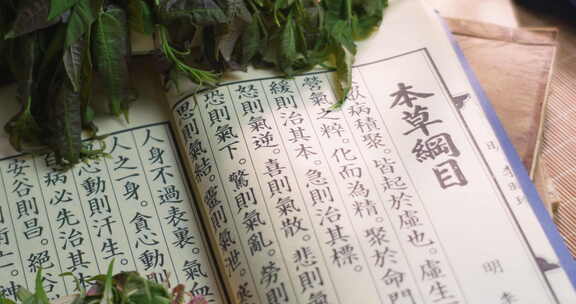 本草綱目
明 李時珍
病積聚。皆起於虛也。虛生
營氣之粹。化而為精。聚於命門
緩則治其本。急則治其標。
怒則氣逆。喜則氣散。悲則
恐則氣下。驚則氣亂。勞則
思則氣結。則氣泄。
人身不過表裏。氣
人之一身。貪心動
心動則汗生。
百病必先治其本
安谷則昌。絕谷
明